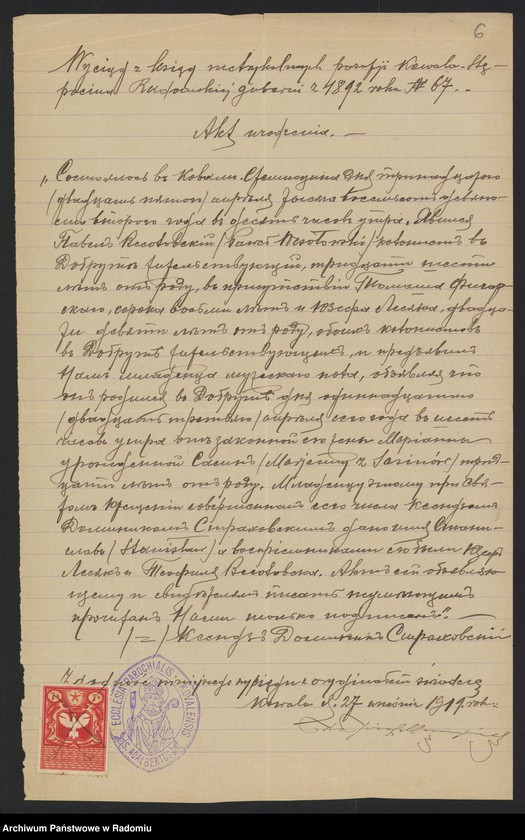 6
Wyciąg z ksiąg metrykalnych parafji Kowala-Stę-
pocina Radomskiej gubernii z 1892 roku № 67.
Akt urodzenia. —
„Состоялось въ Ковали-Стемпоцина дня тринадцатого
/двадцать пятого/ апрѣля тысяча восемьсотъ девяно-
сто второго года въ десять часовъ утра. Явился
Павелъ Весоловскiй /Paweł Wesołowski/ колонистъ въ
Добрутѣ жительствующiй, тридцати шести
лѣтъ отъ роду, въ присутствiи Томаша Фигар-
ского, сорока восьми лѣтъ и Iозефа Лесяка, двадца-
ти девяти лѣтъ отъ роду, обоихъ колонистовъ
въ Добрутѣ жительствующихъ, и предъявилъ
Намъ младенца мужескаго пола, объявляя что
онъ родился въ Добрутѣ дня одиннадцатого
/двадцать третьяго/ апрѣля сего года въ шесть
часовъ утра отъ законной его жены Марiанны
урожденной Сасинъ /Marjanny z Sasinów/ трид-
цати лѣтъ отъ роду. Младенцу этому при Свя-
томъ Крещенiи совершенномъ сего числа Ксендзомъ
Доминикомъ Сцираковскимъ дано имя Стани-
славъ /Stanisław/ а воспрiемниками его были
Лесякъ и Теофиля Весоловска. Актъ сей объявляю-
щему и свидѣтелямъ писать неумѣющимъ
прочитанъ Нами только подписанъ". —
/-/ Ксендзъ Доминикъ Сцираковскiй
Zgodność niniejszego wyciągu z oryginałem świadczę
Kowala d. 27 września 1919 roku
ECCLESIA PAROCHIALIS KOVALENSIS
S. ADALBERTUS
Archiwum Państwowe w Radomiu